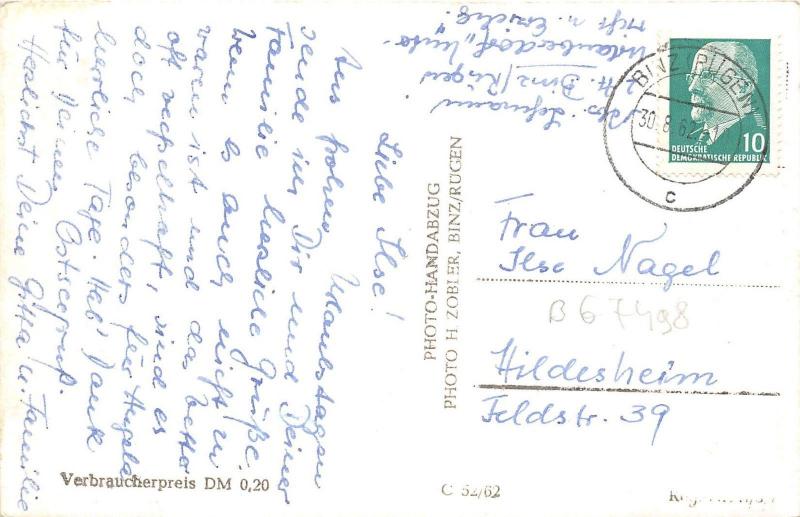 Liebe Ilse!
Aus frohen Urlaubstagen
sende ich Dir und Deiner
Familie herzliche Grüße.
Wenn es auch nicht zu
warm ist und das Wetter
oft wechselhaft, sind es
doch, besonders für Angela
herrliche Tage. Hab' Dank
für Deinen Ostseegruß.
Herzlichst Deine Gitta u. Familie
Abs. Lehmann
z. Zt. Binz/Rügen
Urlauberdorf
PHOTO-HANDABZUG
PHOTO H. ZOBLER, BINZ/RÜGEN
BINZ (RÜGEN)
30.8.62
c
10
DEUTSCHE
DEMOKRATISCHE REPUBLIK
Frau
Ilse Nagel
B 67498
Hildesheim
Feldstr. 39
Verbraucherpreis DM 0,20
C 52/62